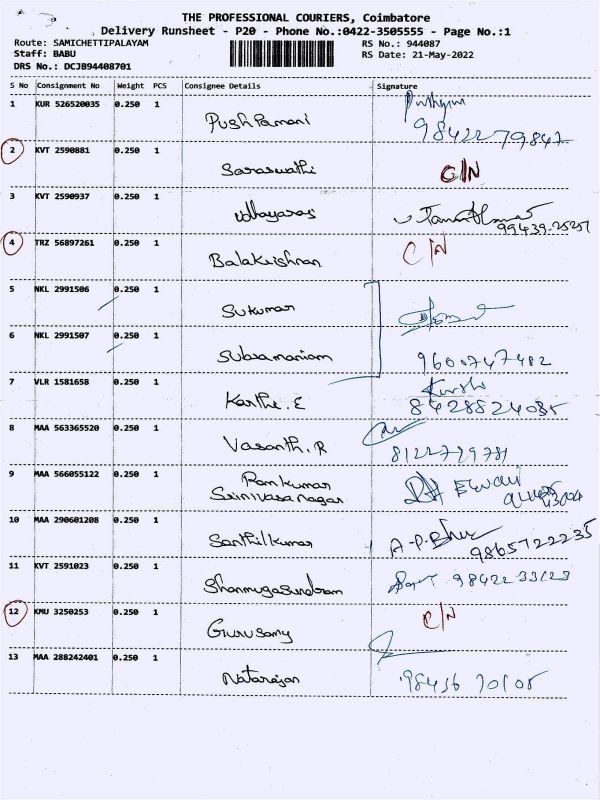 THE PROFESSIONAL COURIERS, Coimbatore
Delivery Runsheet - P20 - Phone No.:0422-3505555 - Page No.:1
Route: SAMICHETTIPALAYAM RS No.: 944087
Staff: BABU RS Date: 21-May-2022
DRS No.: DCJB94408701
S No Consignment No Weight PCS Consignee Details Signature
1 KUR 526520035 0.250 1 Pushpamani
9842279847
2 KVT 2590881 0.250 1 Saraswathi C/N
3 KVT 2590937 0.250 1
99439-25251
4 TRZ 56897261 0.250 1 Balakrishnan C/N
5 NKL 2991506 0.250 1 Sukumar
6 NKL 2991507 0.250 1 Subramaniam 9600747482
7 VLR 1581658 0.250 1 Karthi.E
8428824035
8 MAA 563365520 0.250 1 Vasanth.R 8122729781
9 MAA 566055122 0.250 1 Ramkumar
Srinivasanagar
10 MAA 290601208 0.250 1 Santhilkumar 9865722235
11 KVT 2591023 0.250 1 Shanmugasundram 98422 33123
12 KMU 3250253 0.250 1 Gurusamy C/N
13 MAA 288242401 0.250 1 Natarajan 98436 70105